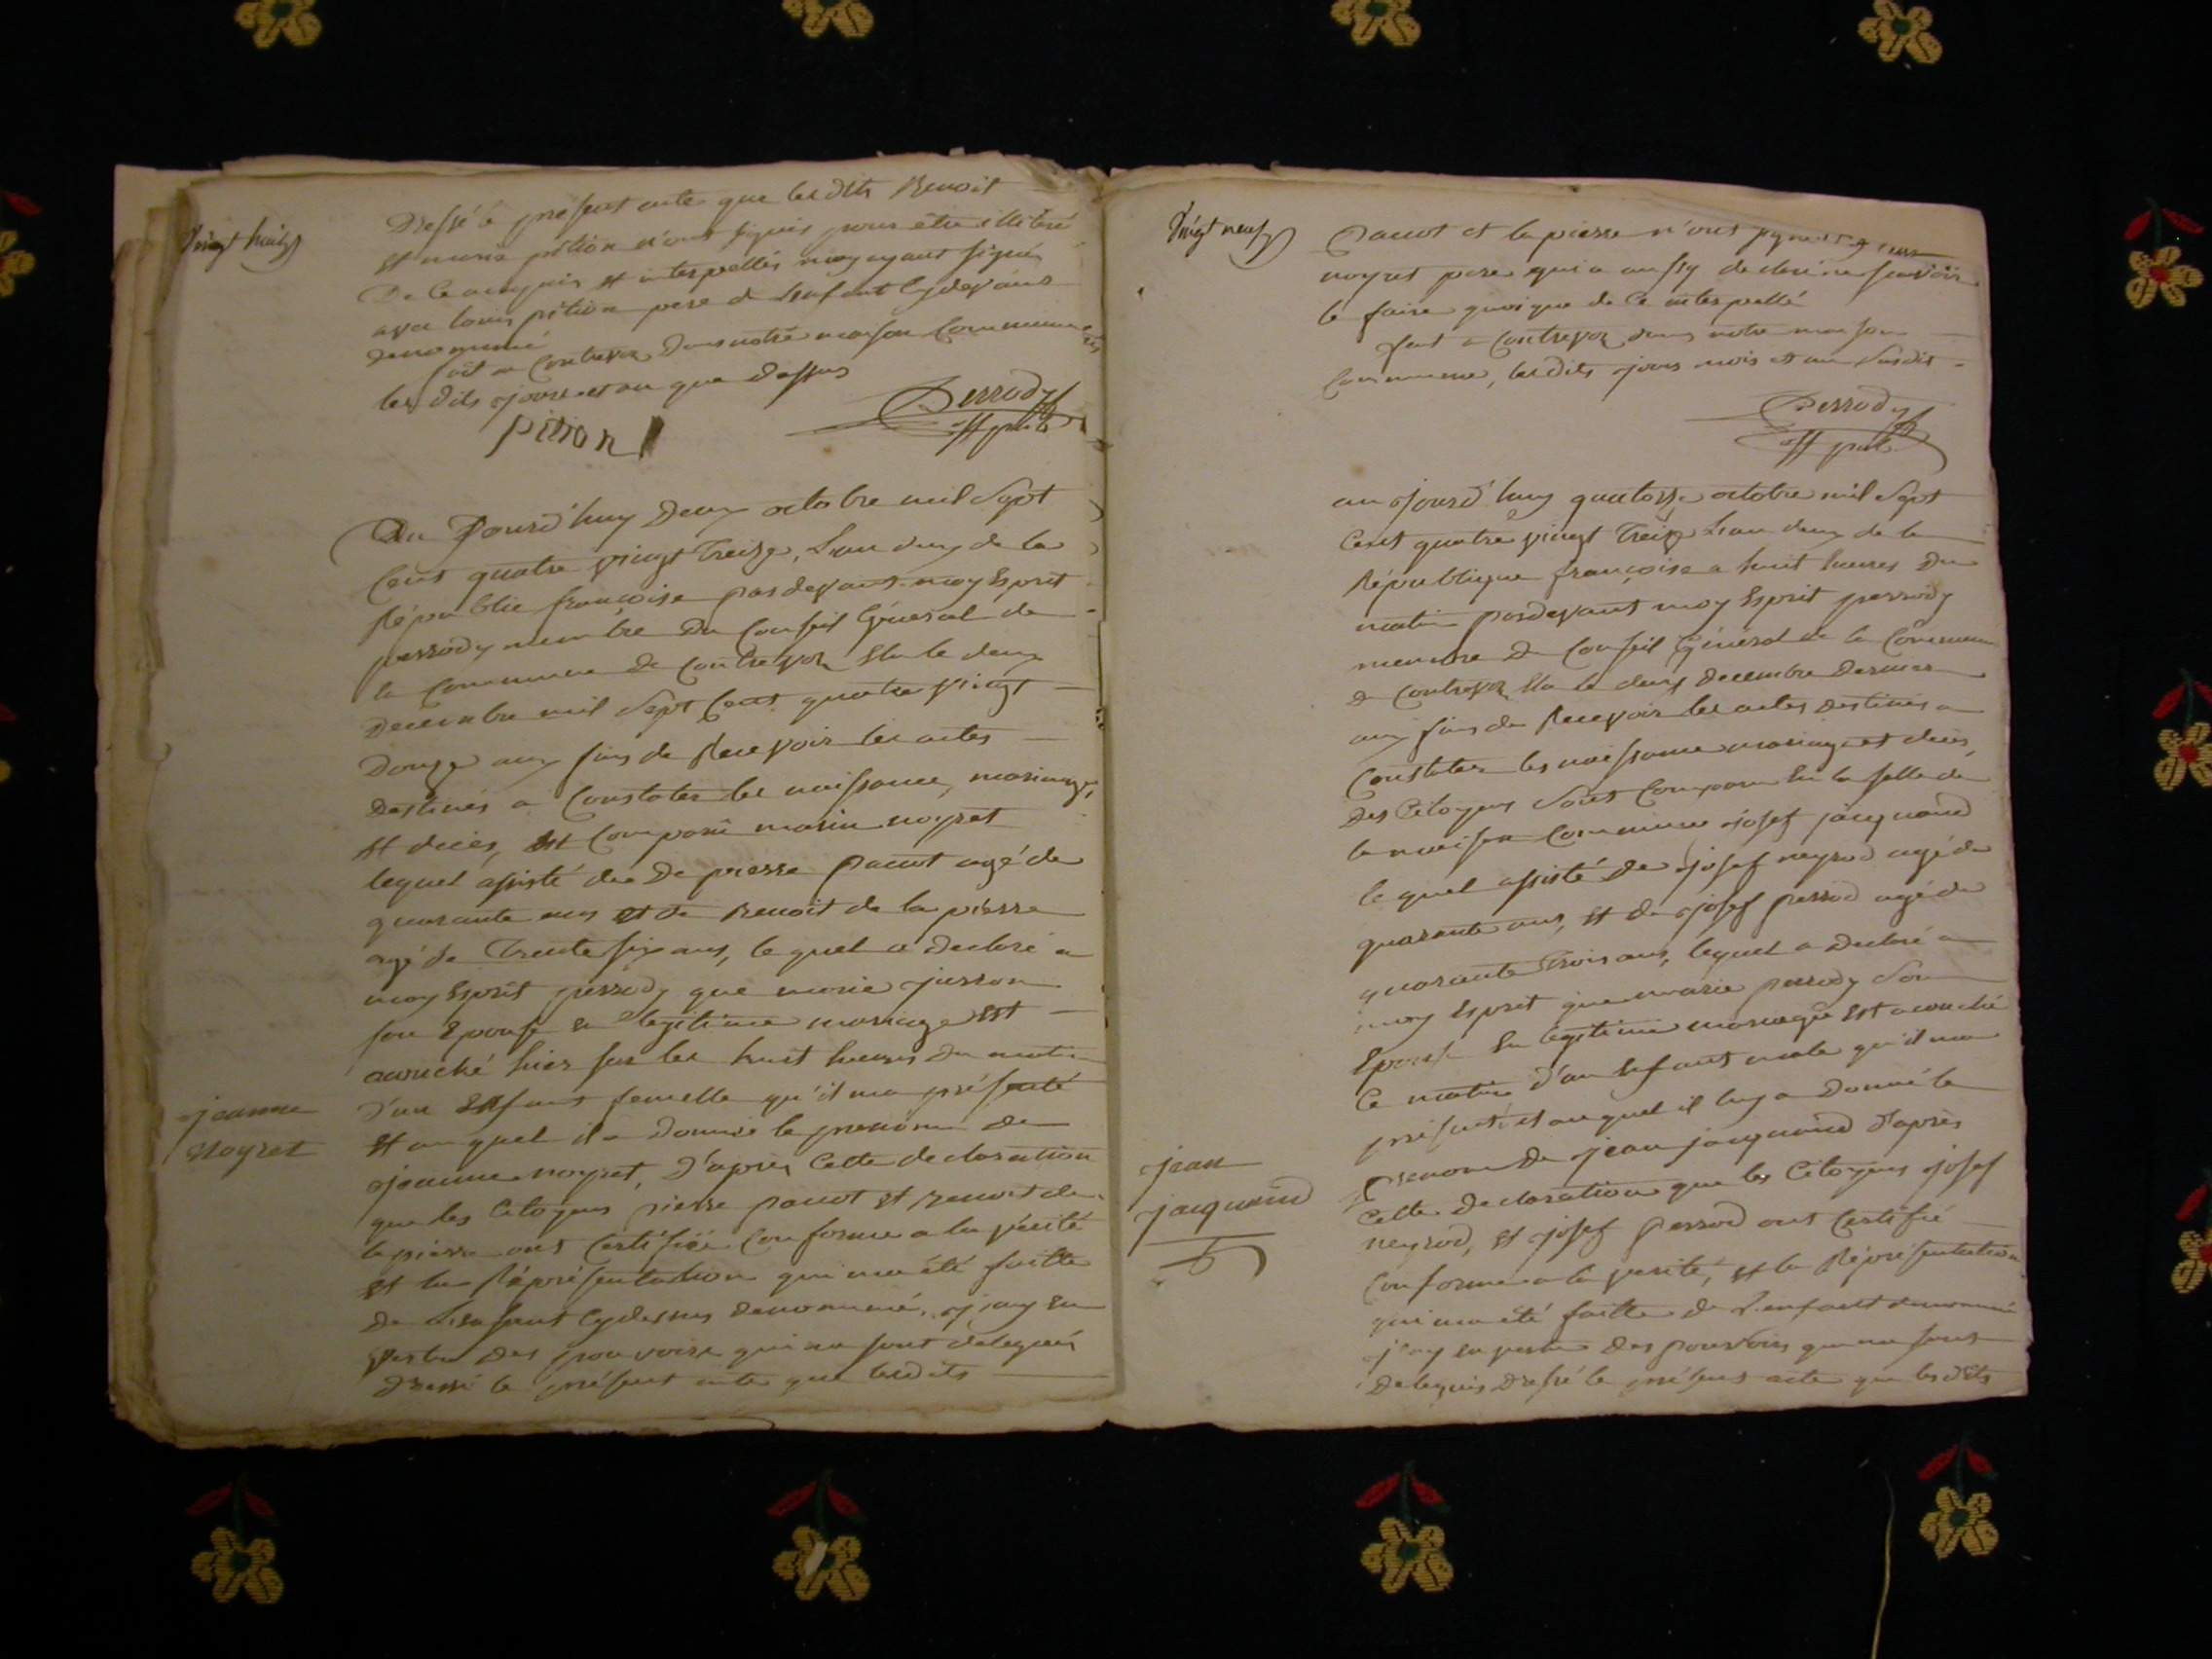 vingt huit
Dressé le présent acte que les dits Benoit
et marie pition n'ont signés pour être illitéré
De ce enquis et interpellés moy ayant signé
avec louis pition pere de Lenfant cy devant
denommé
fait a Contrevoz dans notre maison Commune
les dits jour et an que dessus
pition
Perrody
off publ
Au Jourd'huy Deux octobre mil Sept
Cent quatre vingt Treize, Lan deux de la
Républic françoise pardevant moy Esprit
perrody membre Du Conseil Général de
la Commune de Contrevoz Elu le deux
Decembre mil Sept Cent quatre vingt
Douze aux fins de Recevoir les actes
Destinés a Constater les naissance, mariage,
et décès, est Comparû noyret
lequel assisté de De pierre pacut agé de
quarante ans et de Benoit de la pierre
agé de Trente six ans, le quel a Declaré a
moy Esprit perrody que marie jusson
son Epouse en légitime mariage est
acouché hier sur les huit heures du matin
D'un Enfant femelle qu'il ma présenté
et au quel il a Donné le prenom de
jeanne noyret, D'après Cette declaration
que les Citoyens pierre pacut et Benoit de
la pierre ont Certifiée Conforme a la vérité
et la Réprésentation qui ma été faitte
De Lenfant cy dessus denommé, j'ay en
vertu Des pouvoirs qui me sont délégués
Dressé le présent acte que les dits
jeanne
Noyret
vingt neuf
Pacut et la pierre n'ont signés
noyret pere qui a aussy declaré ne scavoir
le faire quoique de Ce interpellé
fait a Contrevoz dans notre maison
Commune, les dits jours mois et an susdit
Perrody
off publ
au jourd'huy quatorze octobre mil Sept
Cent quatre vingt Treize Lan deux de la
République françoise a huit heures Du
matin pardevant moy Esprit perrody
membre Du Conseil Général de la Commune
de Contrevoz Elu le deux decembre Dernier
aux fins de Recevoir les actes destinés a
Constater les naissance mariage et décès,
Des Citoyens Sont Comparu En la salle de
la maison Commune josef jacquand
le quel assisté de josef neyrod agé de
quarante ans, et de josef perrod agé de
quarante Trois ans, lequel a Declaré a
moy Esprit que marie perrody Son
Epouse En légitime mariage Est acouché
Ce matin D'un Enfant male qu'il ma
présenté et auquel il luy a Donné le
Prenom De jean jacquand D'après
Cette Declaration que les Citoyens josef
neyrod, et josef perrod ont Certifié
Conforme a la verité, et la Réprésentation
qui ma été faitte de L'enfant denommé
j'ay en vertu Des pouvoirs qui me sont
Delegués Dressé le présent acte que les dits
jean
jacquand